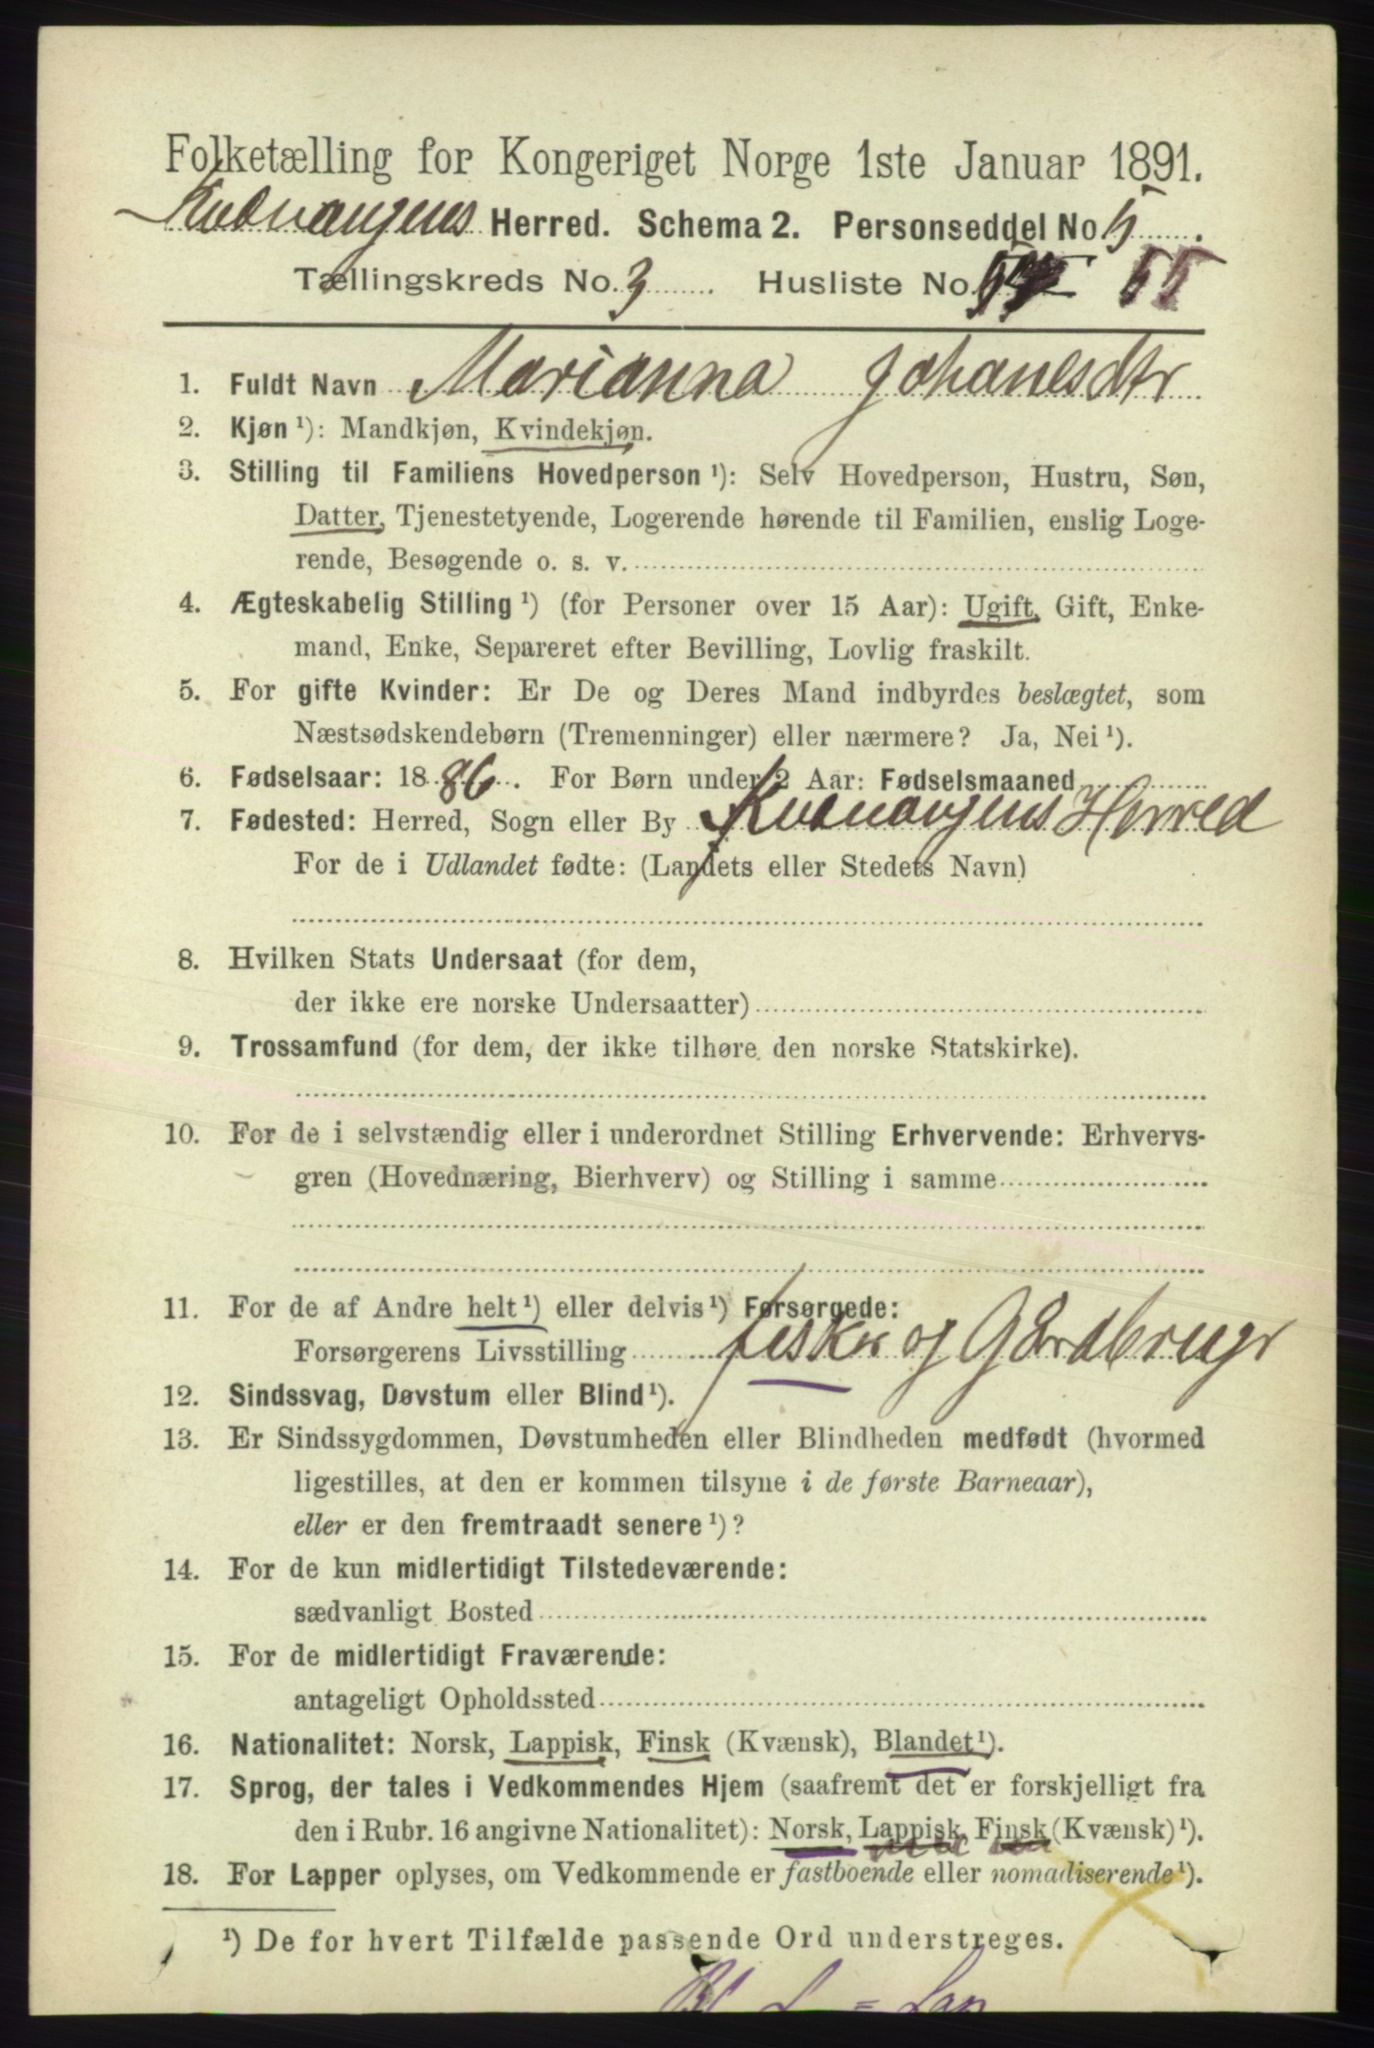 Folketælling for Kongeriget Norge 1ste Januar 1891.
Kvænangens Herred. Schema 2. Personseddel No. 5
Tællingskreds No. 3 Husliste No. 55
1. Fuldt Navn Marianna Johanesdtr
2. Kjøn ¹): Mandkjøn, Kvindekjøn.
3. Stilling til Familiens Hovedperson ¹): Selv Hovedperson, Hustru, Søn,
Datter, Tjenestetyende, Logerende hørende til Familien, enslig Loge-
rende, Besøgende o. s. v.
4. Ægteskabelig Stilling ¹) (for Personer over 15 Aar): Ugift, Gift, Enke-
mand, Enke, Separeret efter Bevilling, Lovlig fraskilt.
5. For gifte Kvinder: Er De og Deres Mand indbyrdes beslægtet, som
Næstsødskendebørn (Tremenninger) eller nærmere? Ja, Nei ¹).
6. Fødselsaar: 1886. For Børn under 2 Aar: Fødselsmaaned
7. Fødested: Herred, Sogn eller By Kvænangens Herred
For de i Udlandet fødte: (Landets eller Stedets Navn)
8. Hvilken Stats Undersaat (for dem,
der ikke ere norske Undersaatter)
9. Trossamfund (for dem, der ikke tilhøre den norske Statskirke).
10. For de i selvstændig eller i underordnet Stilling Erhvervende: Erhvervs-
gren (Hovednæring, Bierhverv) og Stilling i samme
11. For de af Andre helt ¹) eller delvis ¹) Forsørgede:
Forsørgerens Livsstilling fiskr og Gårdbrugr
12. Sindssvag, Døvstum eller Blind ¹).
13. Er Sindssygdommen, Døvstumheden eller Blindheden medfødt (hvormed
ligestilles, at den er kommen tilsyne i de første Barneaar),
eller er den fremtraadt senere ¹)?
14. For de kun midlertidigt Tilstedeværende:
sædvanligt Bosted
15. For de midlertidigt Fraværende:
antageligt Opholdssted
16. Nationalitet: Norsk, Lappisk, Finsk (Kvænsk), Blandet ¹).
17. Sprog, der tales i Vedkommendes Hjem (saafremt det er forskjelligt fra
den i Rubr. 16 angivne Nationalitet): Norsk, Lappisk, Finsk (Kvænsk) ¹).
18. For Lapper oplyses, om Vedkommende er fastboende eller nomadiserende ¹).
¹) De for hvert Tilfælde passende Ord understreges.